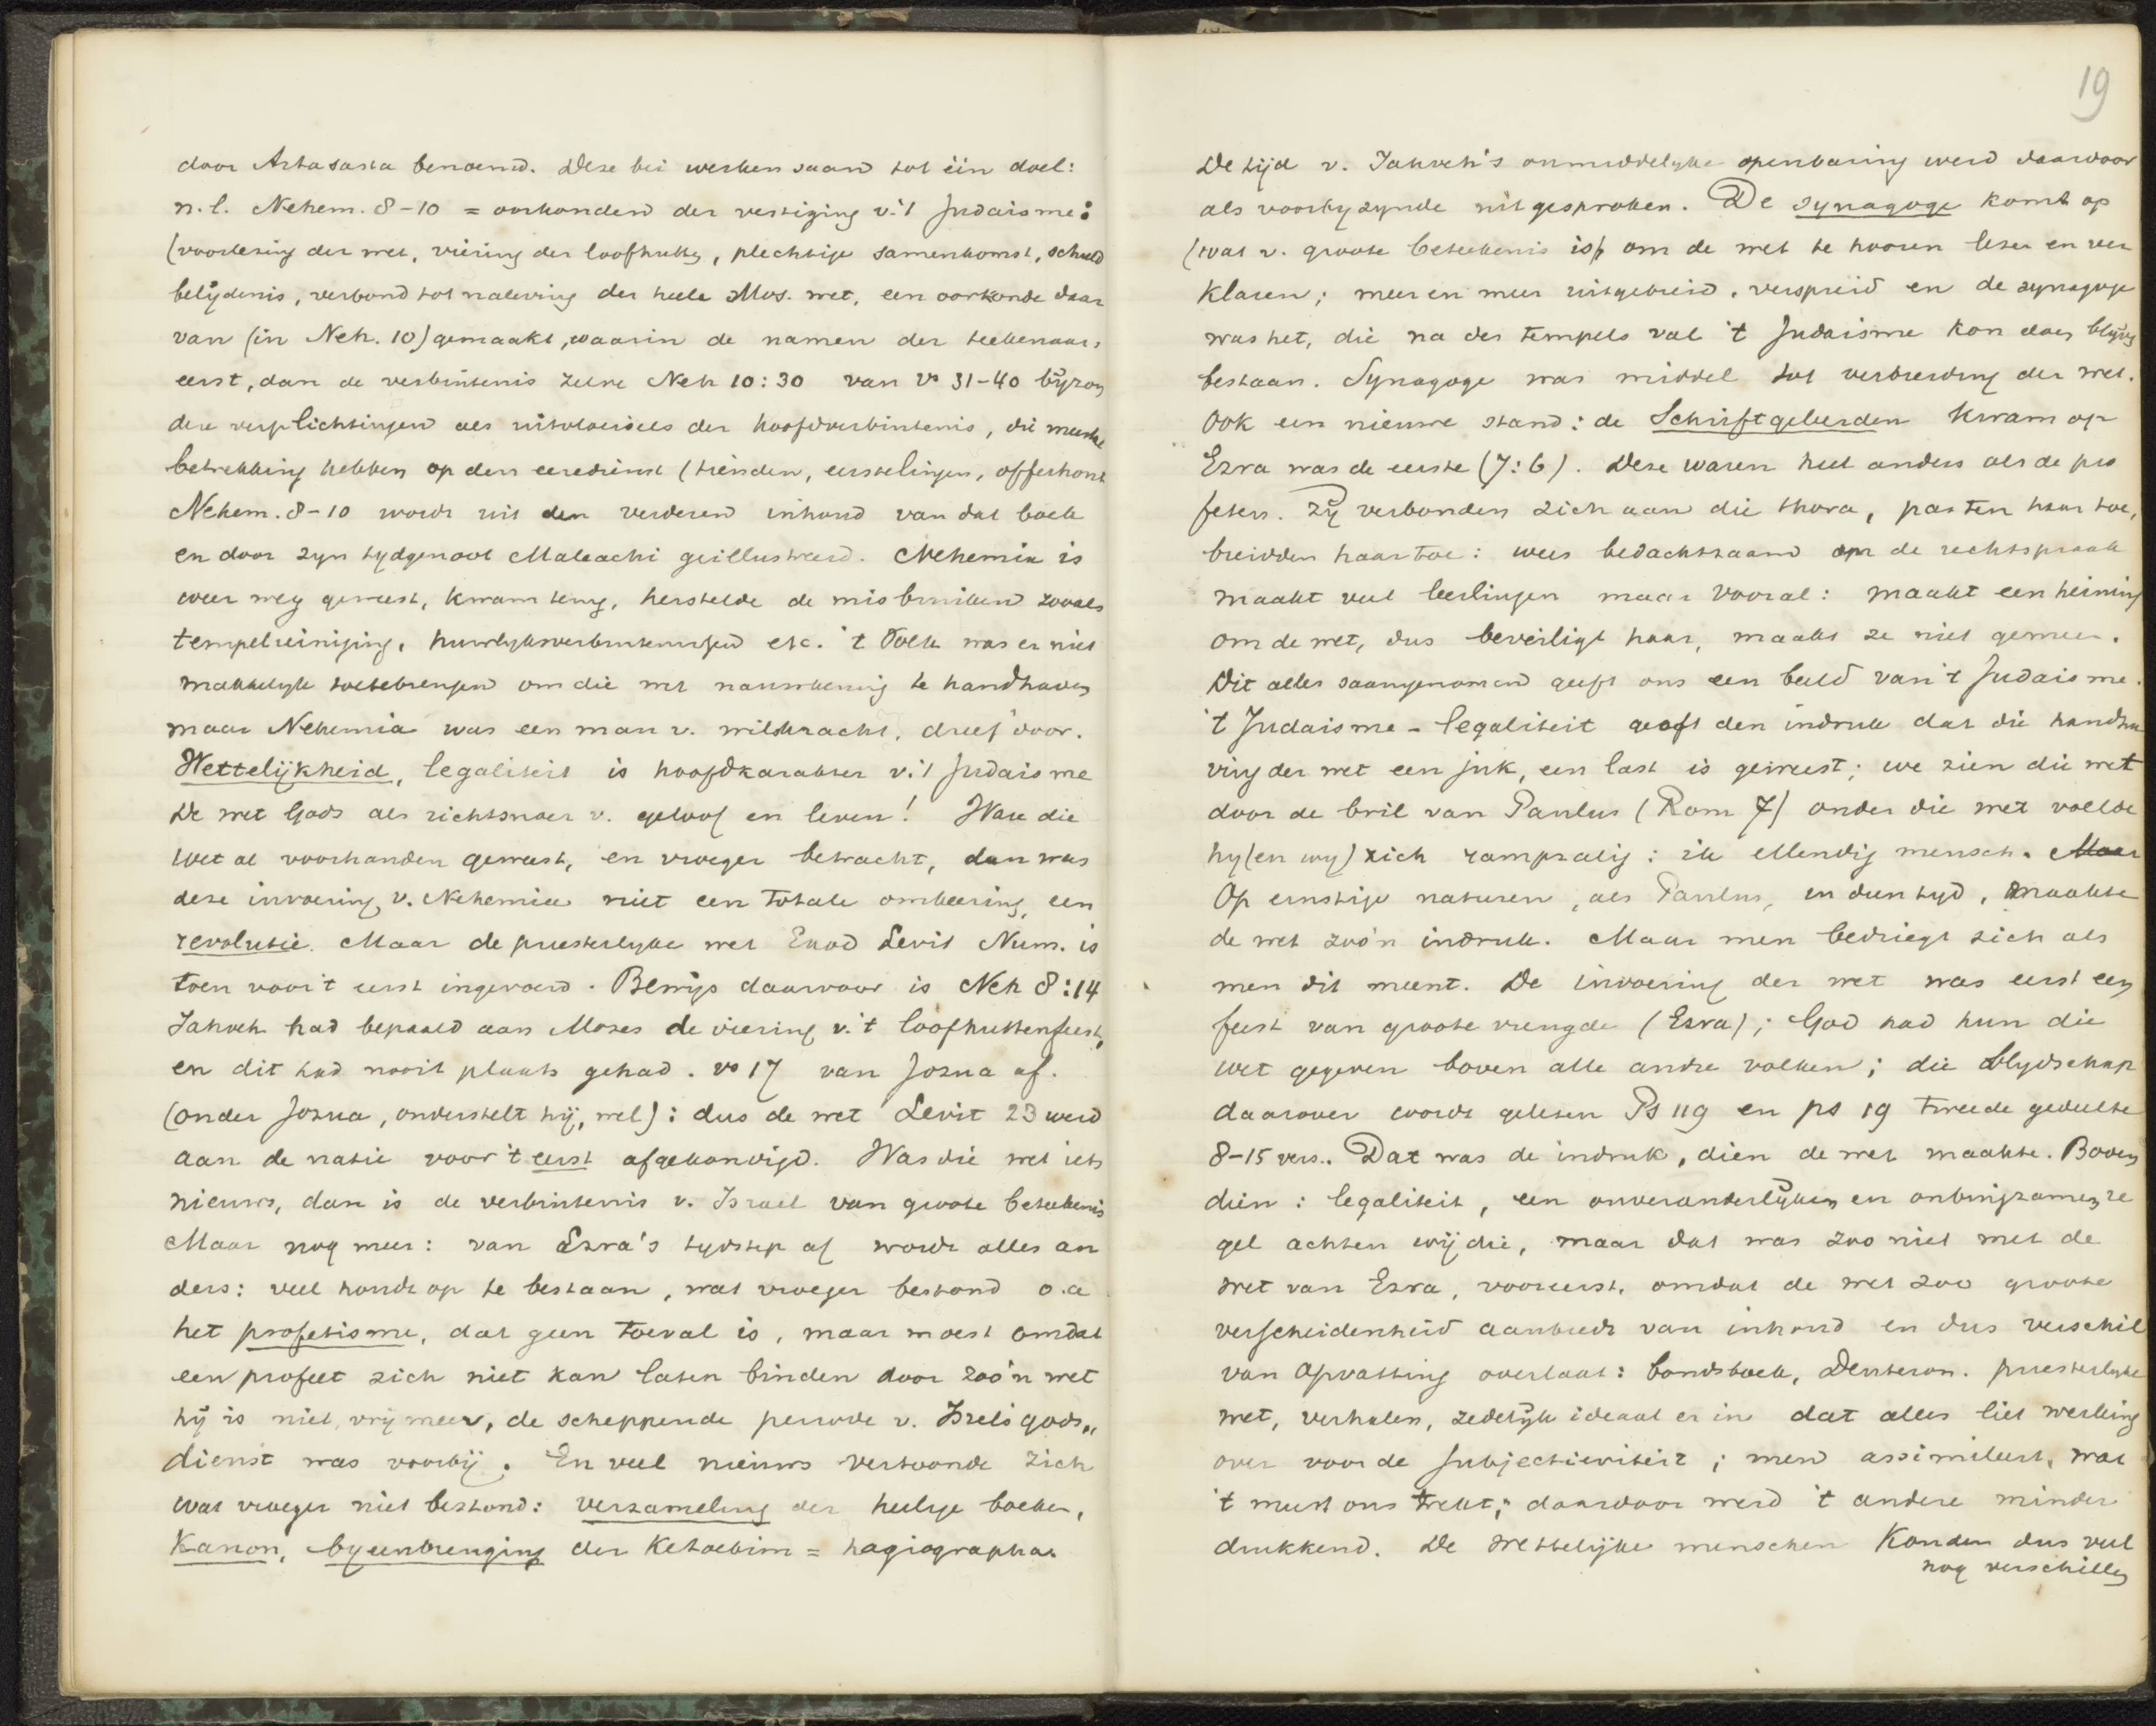 door Artasasta benoemd. Deze bei werken saam tot één doel:
n.l. Nehem. 8-10 = oorkonden der vestiging v.'t Judaisme:
(voorlezing der wet, viering der loofhutten, plechtige samenkomst, schuld
belijdenis, verbond tot naleving der heele Mos. wet, een oorkonde daar
van (in Neh. 10) gemaakt, waarin de namen der teekenaars
eerst, dan de verbintenis zelve Neh 10:30 van vs 31-40 bijzon
dere verplichtingen als uitvloeisels der hoofdverbintenis, die meestal
betrekking hebben op den eeredienst (tienden, eerstelingen, offerhout
Nehem. 8-10 wordt uit den verderen inhoud van dat boek
en door zyn tydgenoot Maleachi geillustreerd. Nehemia is
weer weg geweest, kwam terug, herstelde de misbruiken zooals
tempelreiniging, huwlyksverbintenissen etc. 't Volk was er niet
makkelyk toe te brengen om die wet nauwkeurig te handhaven
maar Nehemia was een man v. wilskracht, dreef door.
Wettelijkheid, legaliteit is hoofdkarakter v.'t Judaisme
De wet Gods als richtsnoer v. geloof en leven! Ware die
wet al voorhanden geweest, en vroeger betracht, dan was
deze invoering v. Nehemia niet een totale omkeering, een
revolutie. Maar de priesterlyke wet Exod Levit Num. is
toen voor 't eerst ingevoerd. Bewijs daarvoor is Neh 8:14
Jahveh had bepaald aan Mozes de viering v.'t loofhuttenfeest,
en dit had nooit plaats gehad. vs 17 van Jozua af.
(onder Jozua, onderstelt hij, wel): dus de wet Levit 23 werd
aan de natie voor 't eerst afgekondigd. Was die wet iets
nieuws, dan is de verbintenis v. Israel van groote beteekenis
Maar nog meer: van Ezra's tydstip af wordt alles an
ders: veel houdt op te bestaan, wat vroeger bestond o.a
het profetisme, dat geen toeval is, maar moest omdat
een profeet zich niet kan laten binden door zoo'n wet
hij is niet vrij meer, de scheppende periode v. Isrels gods„
dienst was voorbij. En veel nieuws vertoonde zich
wat vroeger niet bestond: verzameling der heilige boeken,
Kanon, byeenbrenging der Ketoebim = hagiographa.
19
De tijd v. Jahveh's onmiddelyke openbaring werd daarvoor
als voorby zynde uitgesproken. De synagoge komt op
(wat v. groote beteekenis is) om de wet te hooren lezen en ver
klaren; meer en meer uitgebreid, verspreid en de synagoge
was het, die na des tempels val 't Judaisme kon doen blijven
bestaan. Synagoge was middel tot verbreiding der wet.
Ook een nieuwe stand: de Schriftgeleerden kwam op
Ezra was de eerste (7:6). Deze waren heel anders als de pro
feten. Zij verbonden zich aan die thora, pasten haar toe,
breidden haar toe: wees bedachtzaam op de rechtspraak
maakt veel leerlingen maar vooral: maakt een heining
om de wet, dus beveiligt haar, maakt ze niet gemeen.
Dit alles saamgenomen geeft ons een beeld van 't Judaisme.
't Judaisme - legaliteit geeft den indruk dat die handha
ving der wet een juk, een last is geweest; we zien die wet
door de bril van Paulus (Rom 7) onder die wet voelde
hy (en wy) zich rampzalig: ik ellendig mensch. Maar
Op ernstige naturen, als Paulus, in dien tyd, maakte
de wet zoo'n indruk. Maar men bedriegt zich als
men dit meent. De invoering der wet was eerst een
feest van groote vreugde (Ezra); God had hun die
wet gegeven boven alle andre volken; die blydschap
daarover wordt gelezen Ps 119 en ps 19 tweede gedeelte
8-15 vers. Dat was de indruk, dien de wet maakte. Boven
dien: legaliteit, een onveranderlijken en onbuigzamen re
gel achten wij die, maar dat was zoo niet met de
wet van Ezra, vooreerst, omdat de wet zoo groote
verscheidenheid aanbiedt van inhoud en dus verschil
van opvatting overlaat: bondsboek, Deuteron. priesterlyke
wet, verhalen, zedelijk ideaal er in dat alles liet werking
over voor de subjectiviteit; men assimileert, wat
't meest ons trekt; daardoor werd 't andere minder
drukkend. De wettelijke menschen konden dus veel
nog verschillen